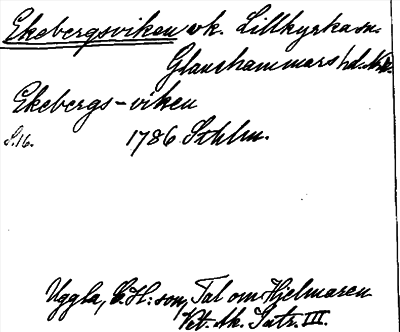 Ekebergsviken vk. Lillkyrka sn.
Glanshammars hd. Nke.
Ekebergs-viken
S. 16. 1786 Sthlm.
Uggla, C. H: son, Tal om Hjelmaren
Vet. Ak. Satr. III.